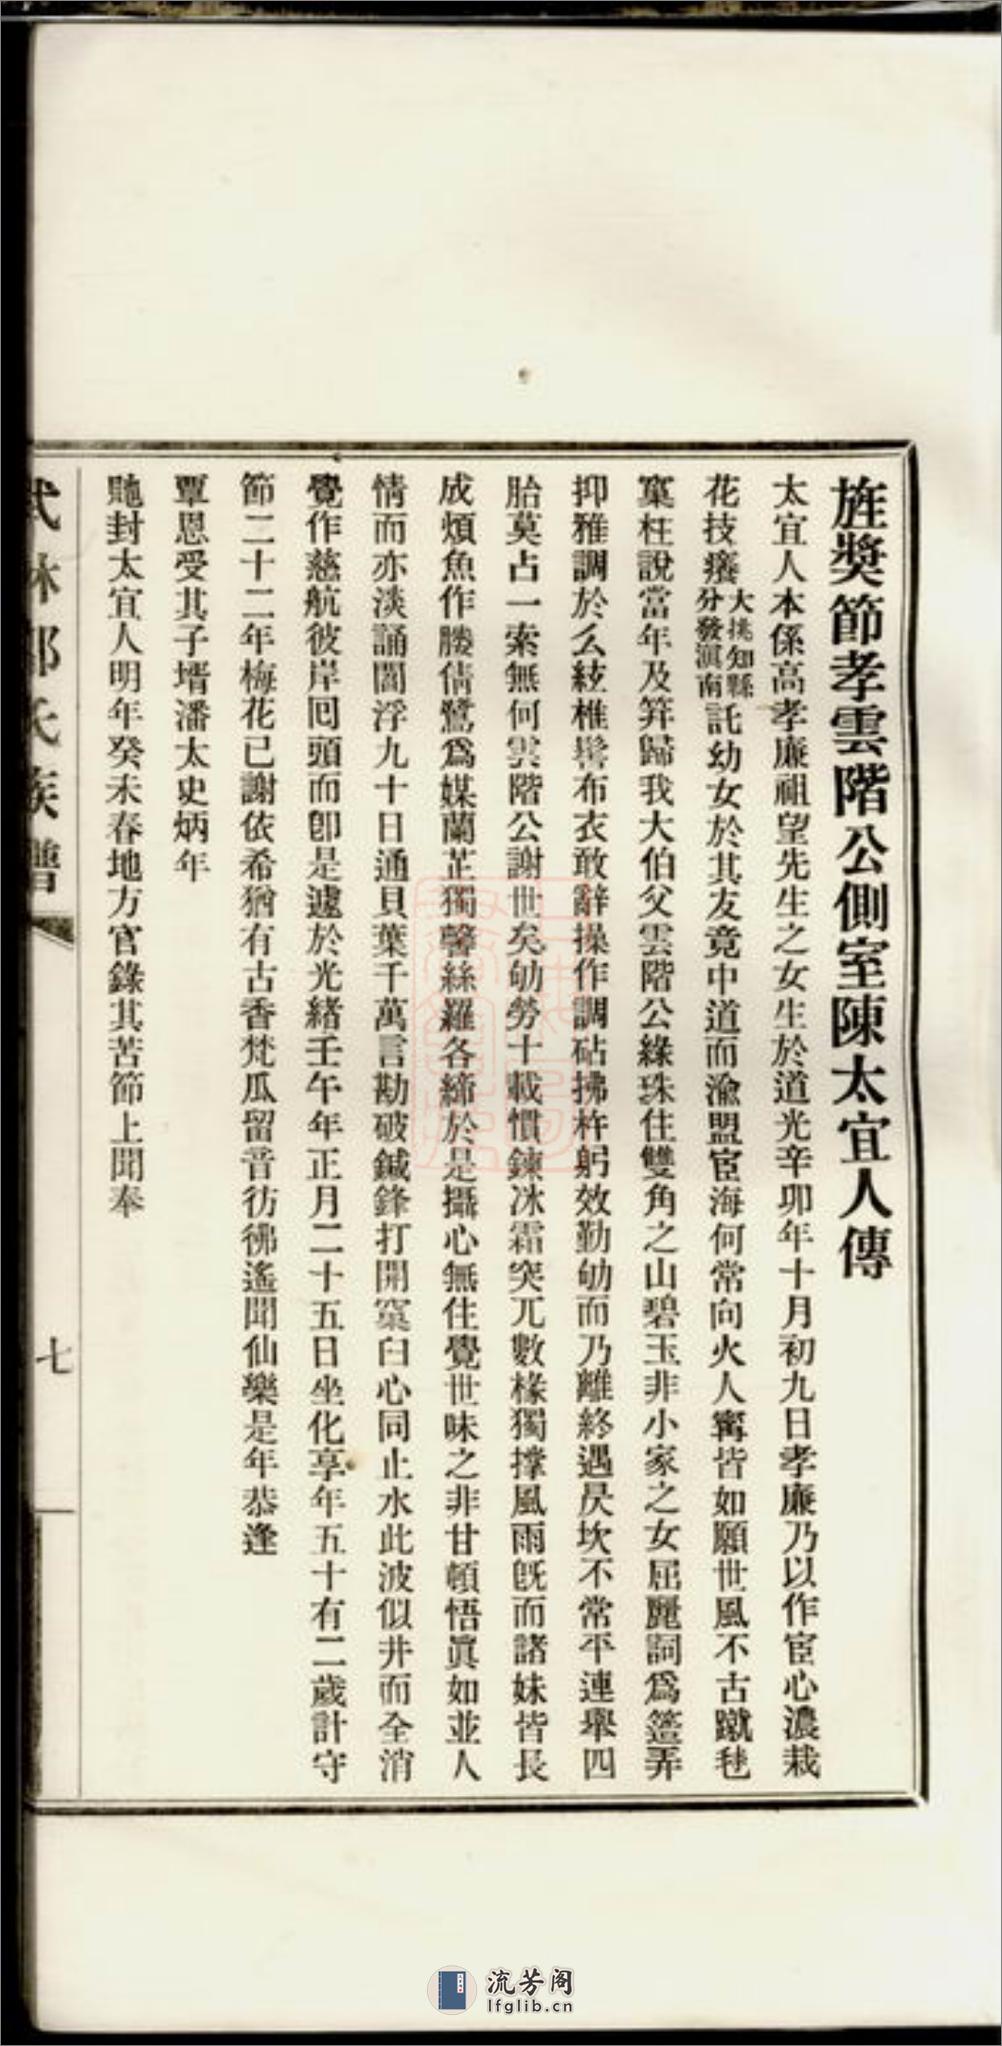 旌獎節孝雲階公側室陳太宜人傳
太宜人本係高孝廉祖望先生之女生於道光辛卯年十月初九日孝廉乃以作宦心濃栽
花技癢大挑知縣分發滇南託幼女於其友竟中道而渝盟宦海何常向火人寗皆如願世風不古蹴毬
窠枉說當年及笄歸我大伯父雲階公綠珠住雙角之山碧玉非小家之女屈麗詞爲簉弄
抑雅調於么絃椎髻布衣敢辭操作調砧拂杵躬效勤劬而乃離終遇昃坎不常平連舉四
胎莫占一索無何雲階公謝世矣劬勞十載慣鍊冰霜突兀數椽獨撑風雨旣而諸妹皆長
成煩魚作媵倩鷺爲媒蘭芷獨馨絲羅各締於是攝心無住覺世味之非甘頓悟眞如並人
情而亦淡誦閻浮九十日通貝葉千萬言勘破鍼鋒打開窠臼心同止水此波似井而全消
覺作慈航彼岸囘頭而卽是遽於光緒壬午年正月二十五日坐化享年五十有二歲計守
節二十二年梅花已謝依希猶有古香梵瓜留音彷彿遙聞仙樂是年恭逢
覃恩受其子壻潘太史炳年
貤封太宜人明年癸未春地方官錄其苦節上聞奉
武林邵氏族譜
七
流芳阁
lfglib.cn